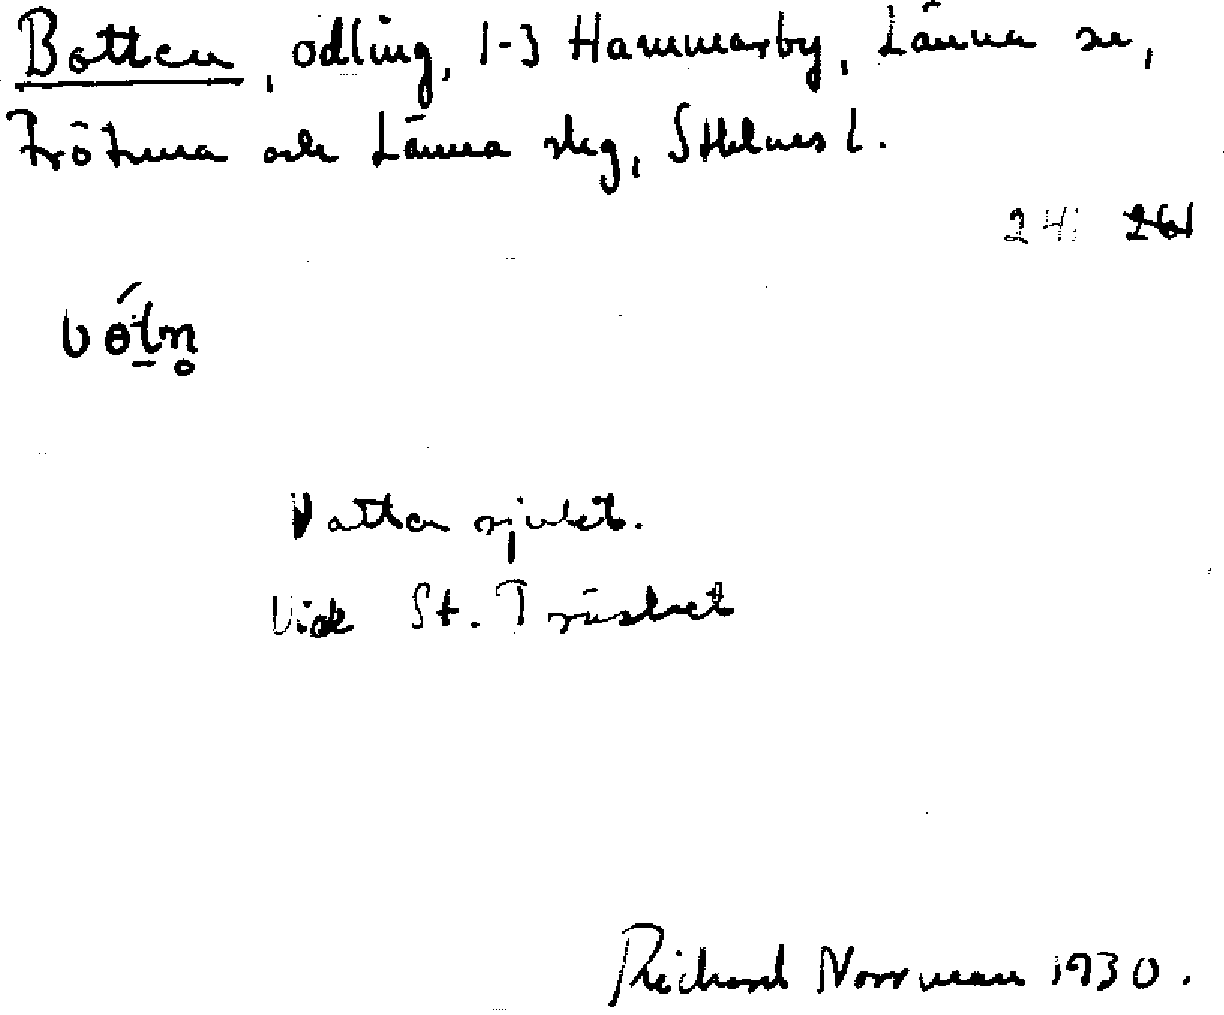 Botten, odling, 1-3 Hammarby, Länna sn,
Frötuna och Länna skg, Sthlms l.
241 261
Vattensjukt.
Vid St. Träsket
Richard Norrman 1930.